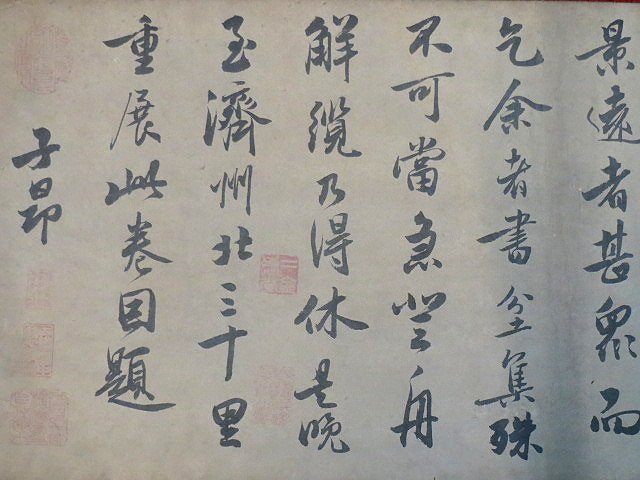 景遠者甚眾而
乞余者書坌集殊
不可當急登舟
解纜乃得休是晚
至濟州北三十里
重展此卷因題
子昂